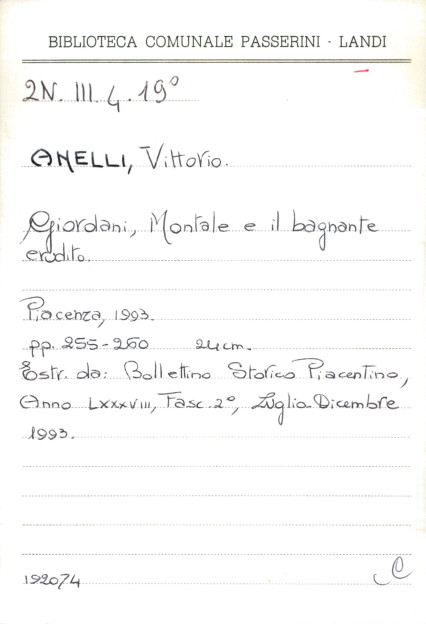 BIBLIOTECA COMUNALE PASSERINI - LANDI
2N. III. 4. 19°
ANELLI, Vittorio.
Giordani, Montale e il bagnante
erudito.
Piacenza, 1993.
pp. 255-260 24cm.
Estr. da: Bollettino Storico Piacentino,
Anno LXXXVIII, Fasc. 2°, Luglia-Dicembre
1993.
192074
C